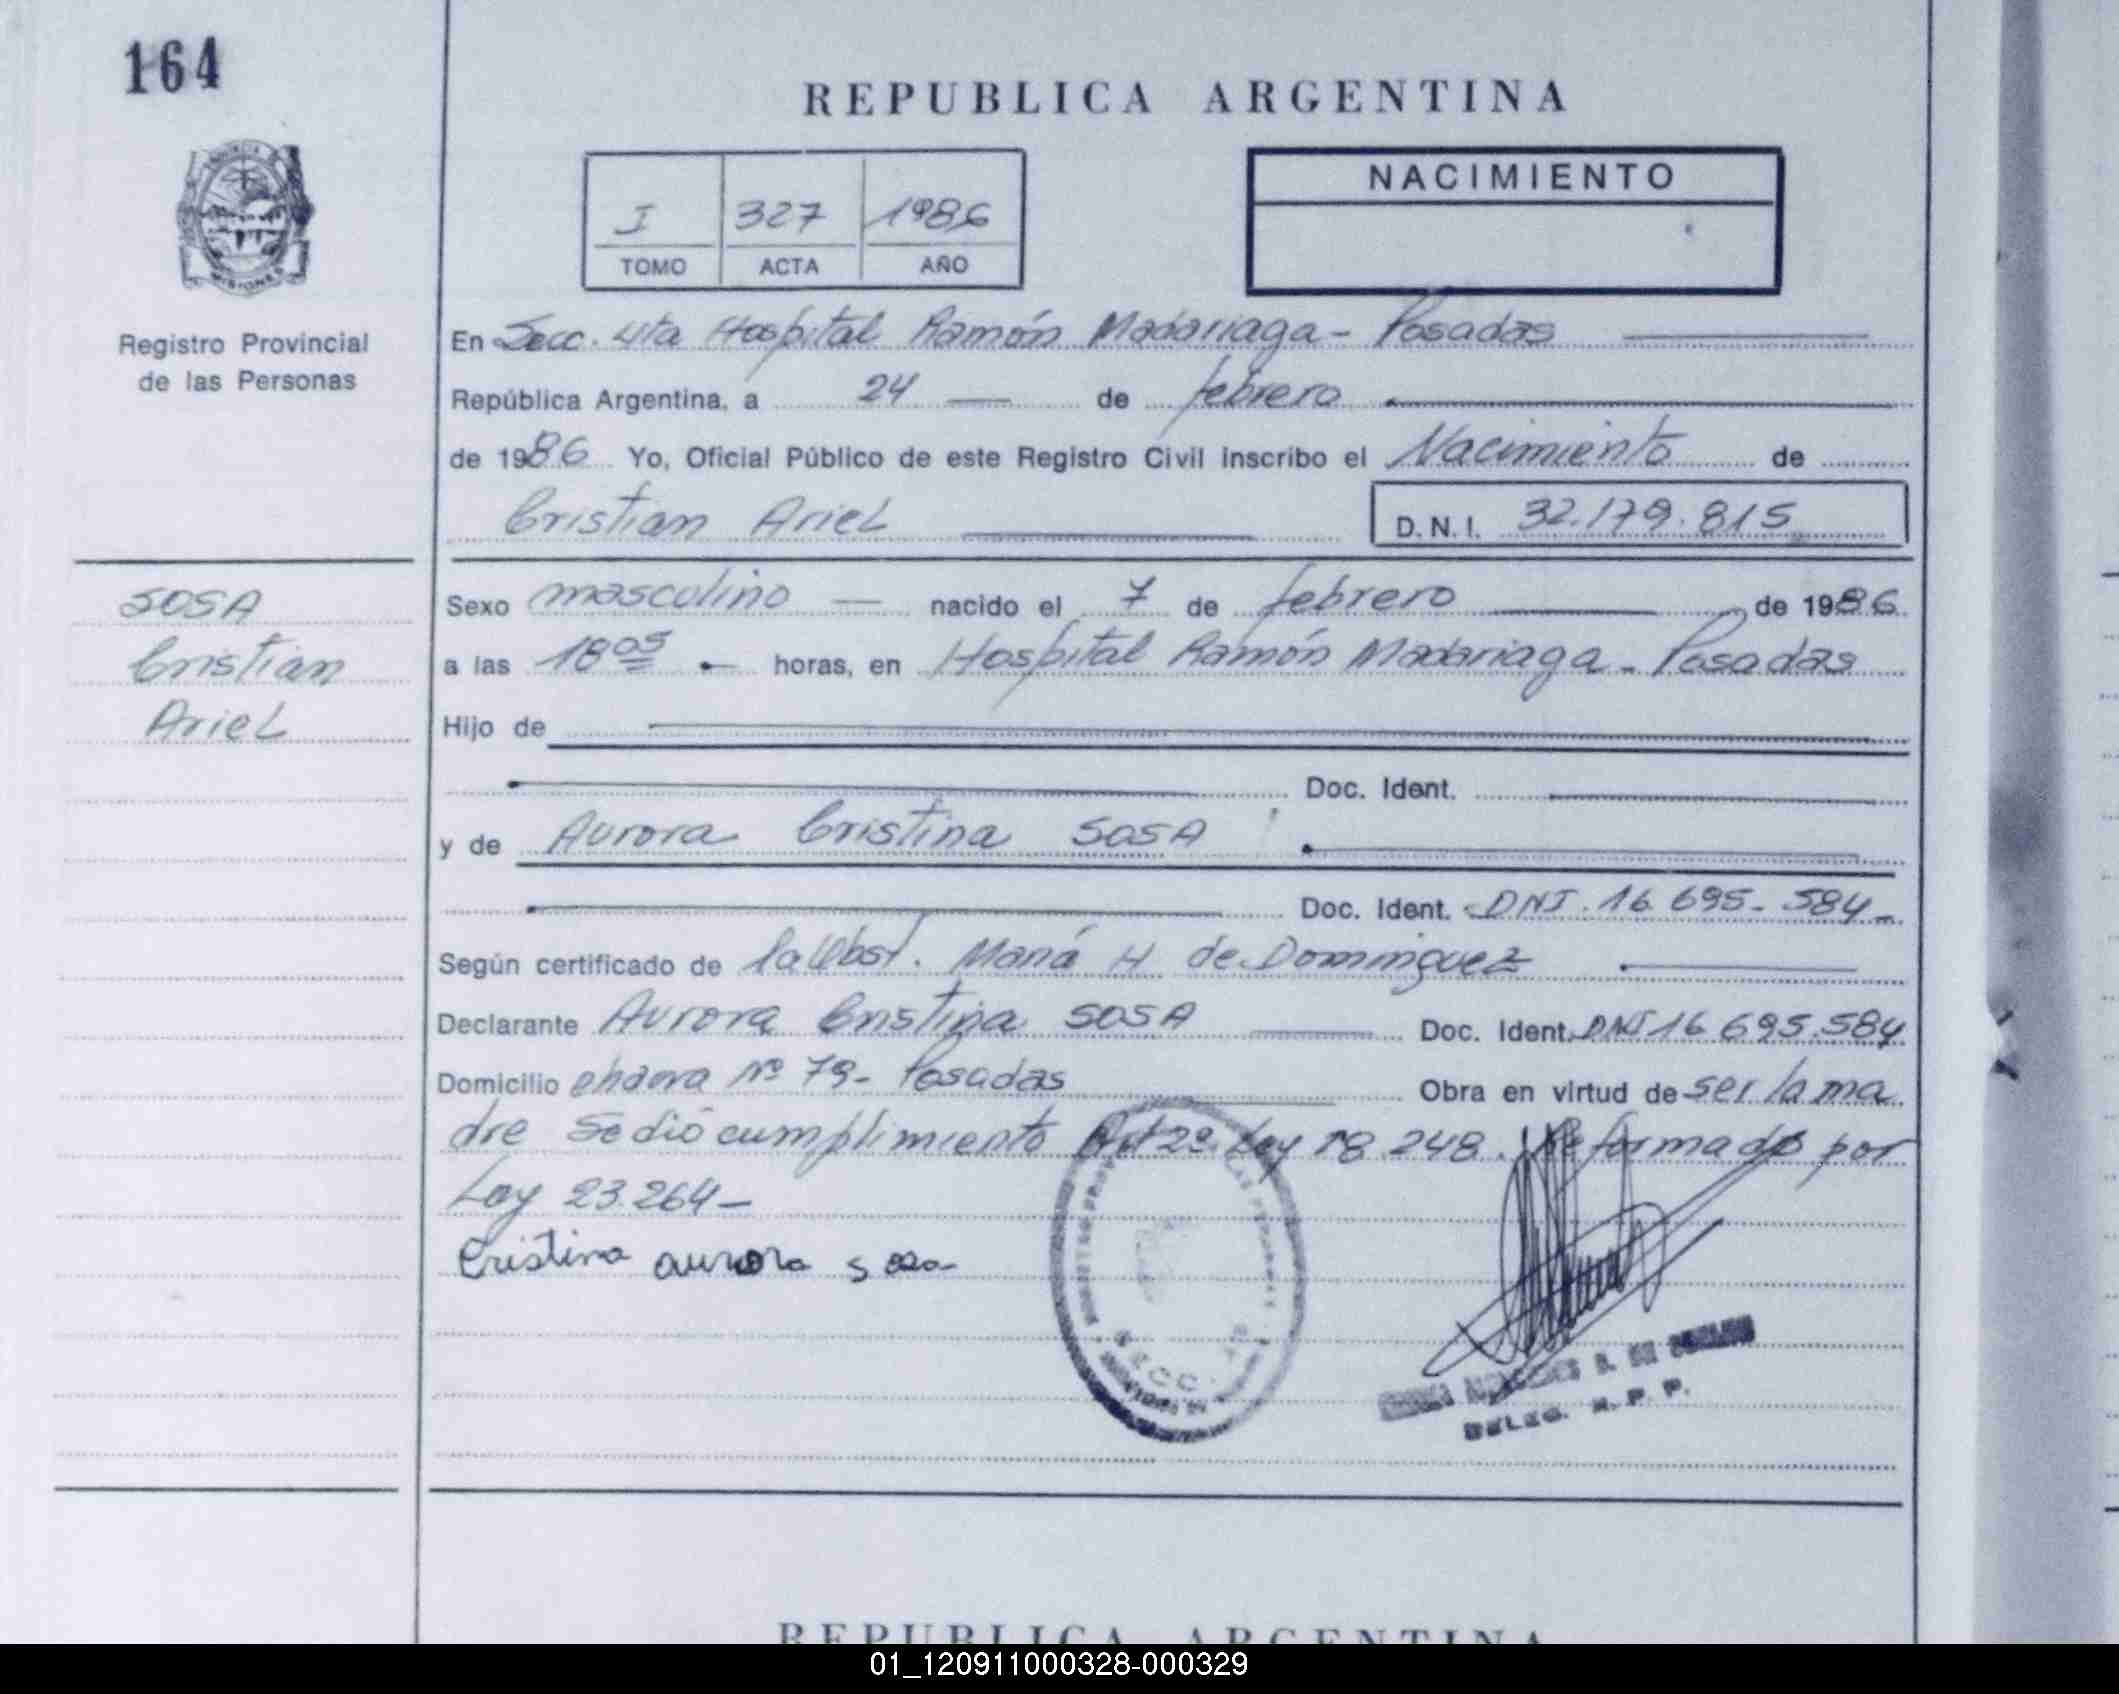 164
REPUBLICA ARGENTINA
I 327 1986
TOMO ACTA AÑO
NACIMIENTO
MISIONES
Registro Provincial
de las Personas
En Secc. 4ta Hospital Ramón Madariaga - Posadas
República Argentina, a 24 de febrero
de 1986 Yo, Oficial Público de este Registro Civil inscribo el Nacimiento de
Cristian Ariel D.N.I. 32.179.815
SOSA
Cristian
Ariel
Sexo masculino nacido el 7 de febrero de 1986
a las 18 05 horas, en Hospital Ramón Madariaga - Posadas
Hijo de
Doc. Ident.
y de Aurora Cristina SOSA
Doc. Ident. DNI. 16.695.584
Según certificado de la Obst. María H de Dominguez
Declarante Aurora Cristina SOSA Doc. Ident. DNI 16.695.584
Domicilio chacra Nº 79 - Posadas Obra en virtud de ser la ma
dre Se dió cumplimiento Art 2º Ley 18.248. Reformado por
Ley 23.264 -
Cristina aurora sosa
SECC.
DELEG. R. P. P.
REPUBLICA ARGENTINA
01_120911000328-000329